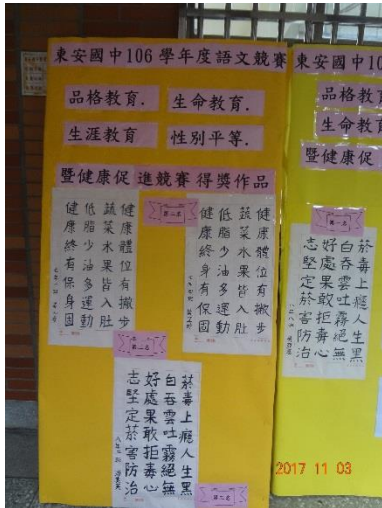 東安國中106 學年度語文競賽
品格教育.
生命教育.
生涯教育
性別平等.
暨健康促 進競賽 得獎作品
第二名
健康體位有撇步
蔬菜水果皆入肚
低脂少油多運動
健康終身有保固
健康體位有撇步
蔬菜水果皆入肚
低脂少油多運動
健康終有保身固
第二名
菸毒上癮人生黑
白吞雲吐霧絕無
好處果敢拒毒心
志堅定菸害防治
第二名
東安國中10
品格教
生命教
暨健康促
第一名
菸毒上癮人生黑
白吞雲吐霧絕無
好處果敢拒毒心
志堅定菸害防治
2017 11 03